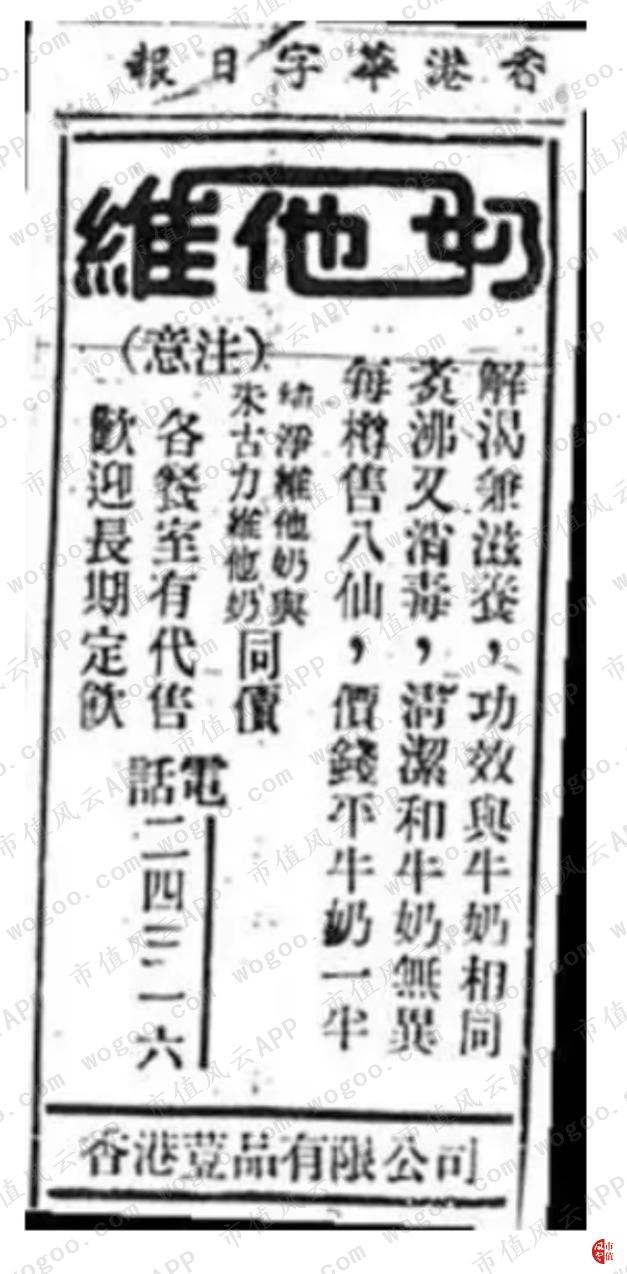 香港華字日報
維他奶
解渴兼滋養，功效與牛奶相同
煮沸又消毒，清潔和牛奶無異
每樽售八仙，價錢平牛奶一半
（注意）
淨維他奶與
朱古力維他奶
同價
各餐室有代售
歡迎長期定飲
電話二四三一六
香港荳品有限公司
市值风云APP wogoo.com
市值风云